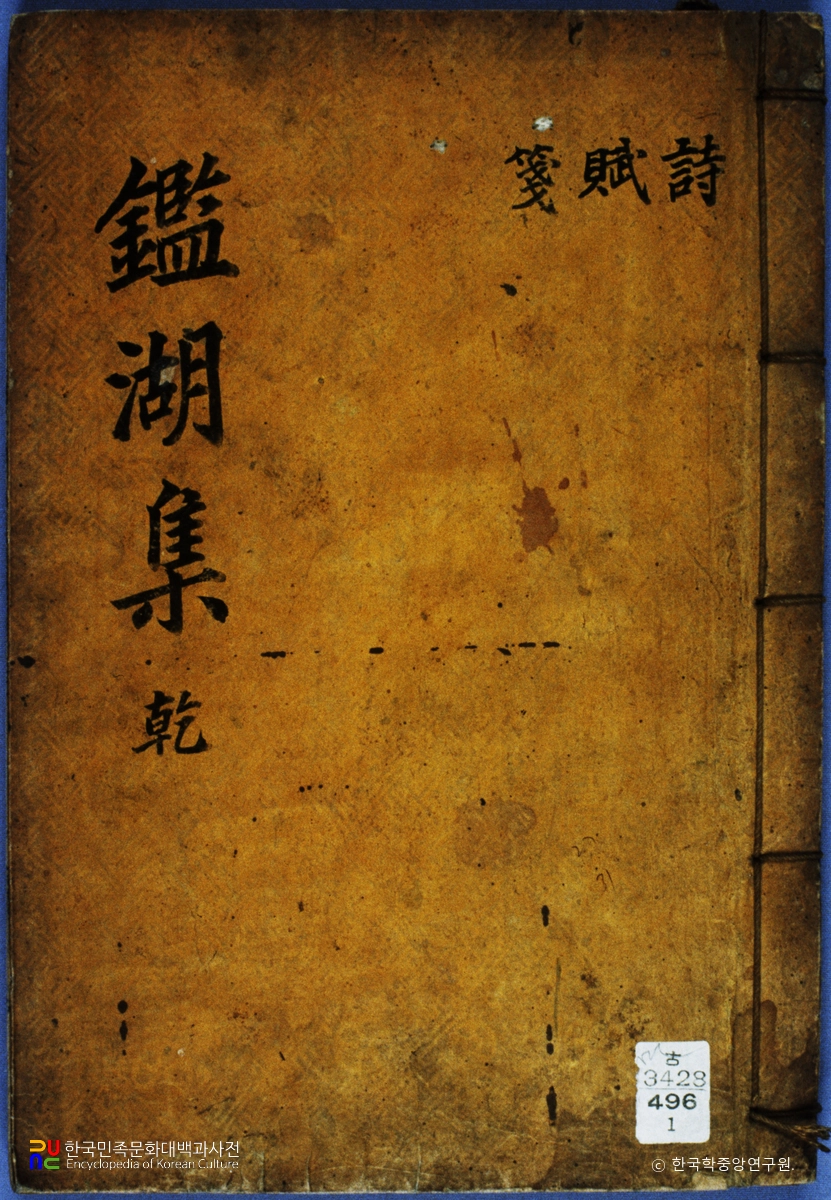 詩賦箋
鑑湖集 乾
古
3428
496
1
한국민족문화대백과사전
Encyclopedia of Korean Culture
ⓒ 한국학중앙연구원.